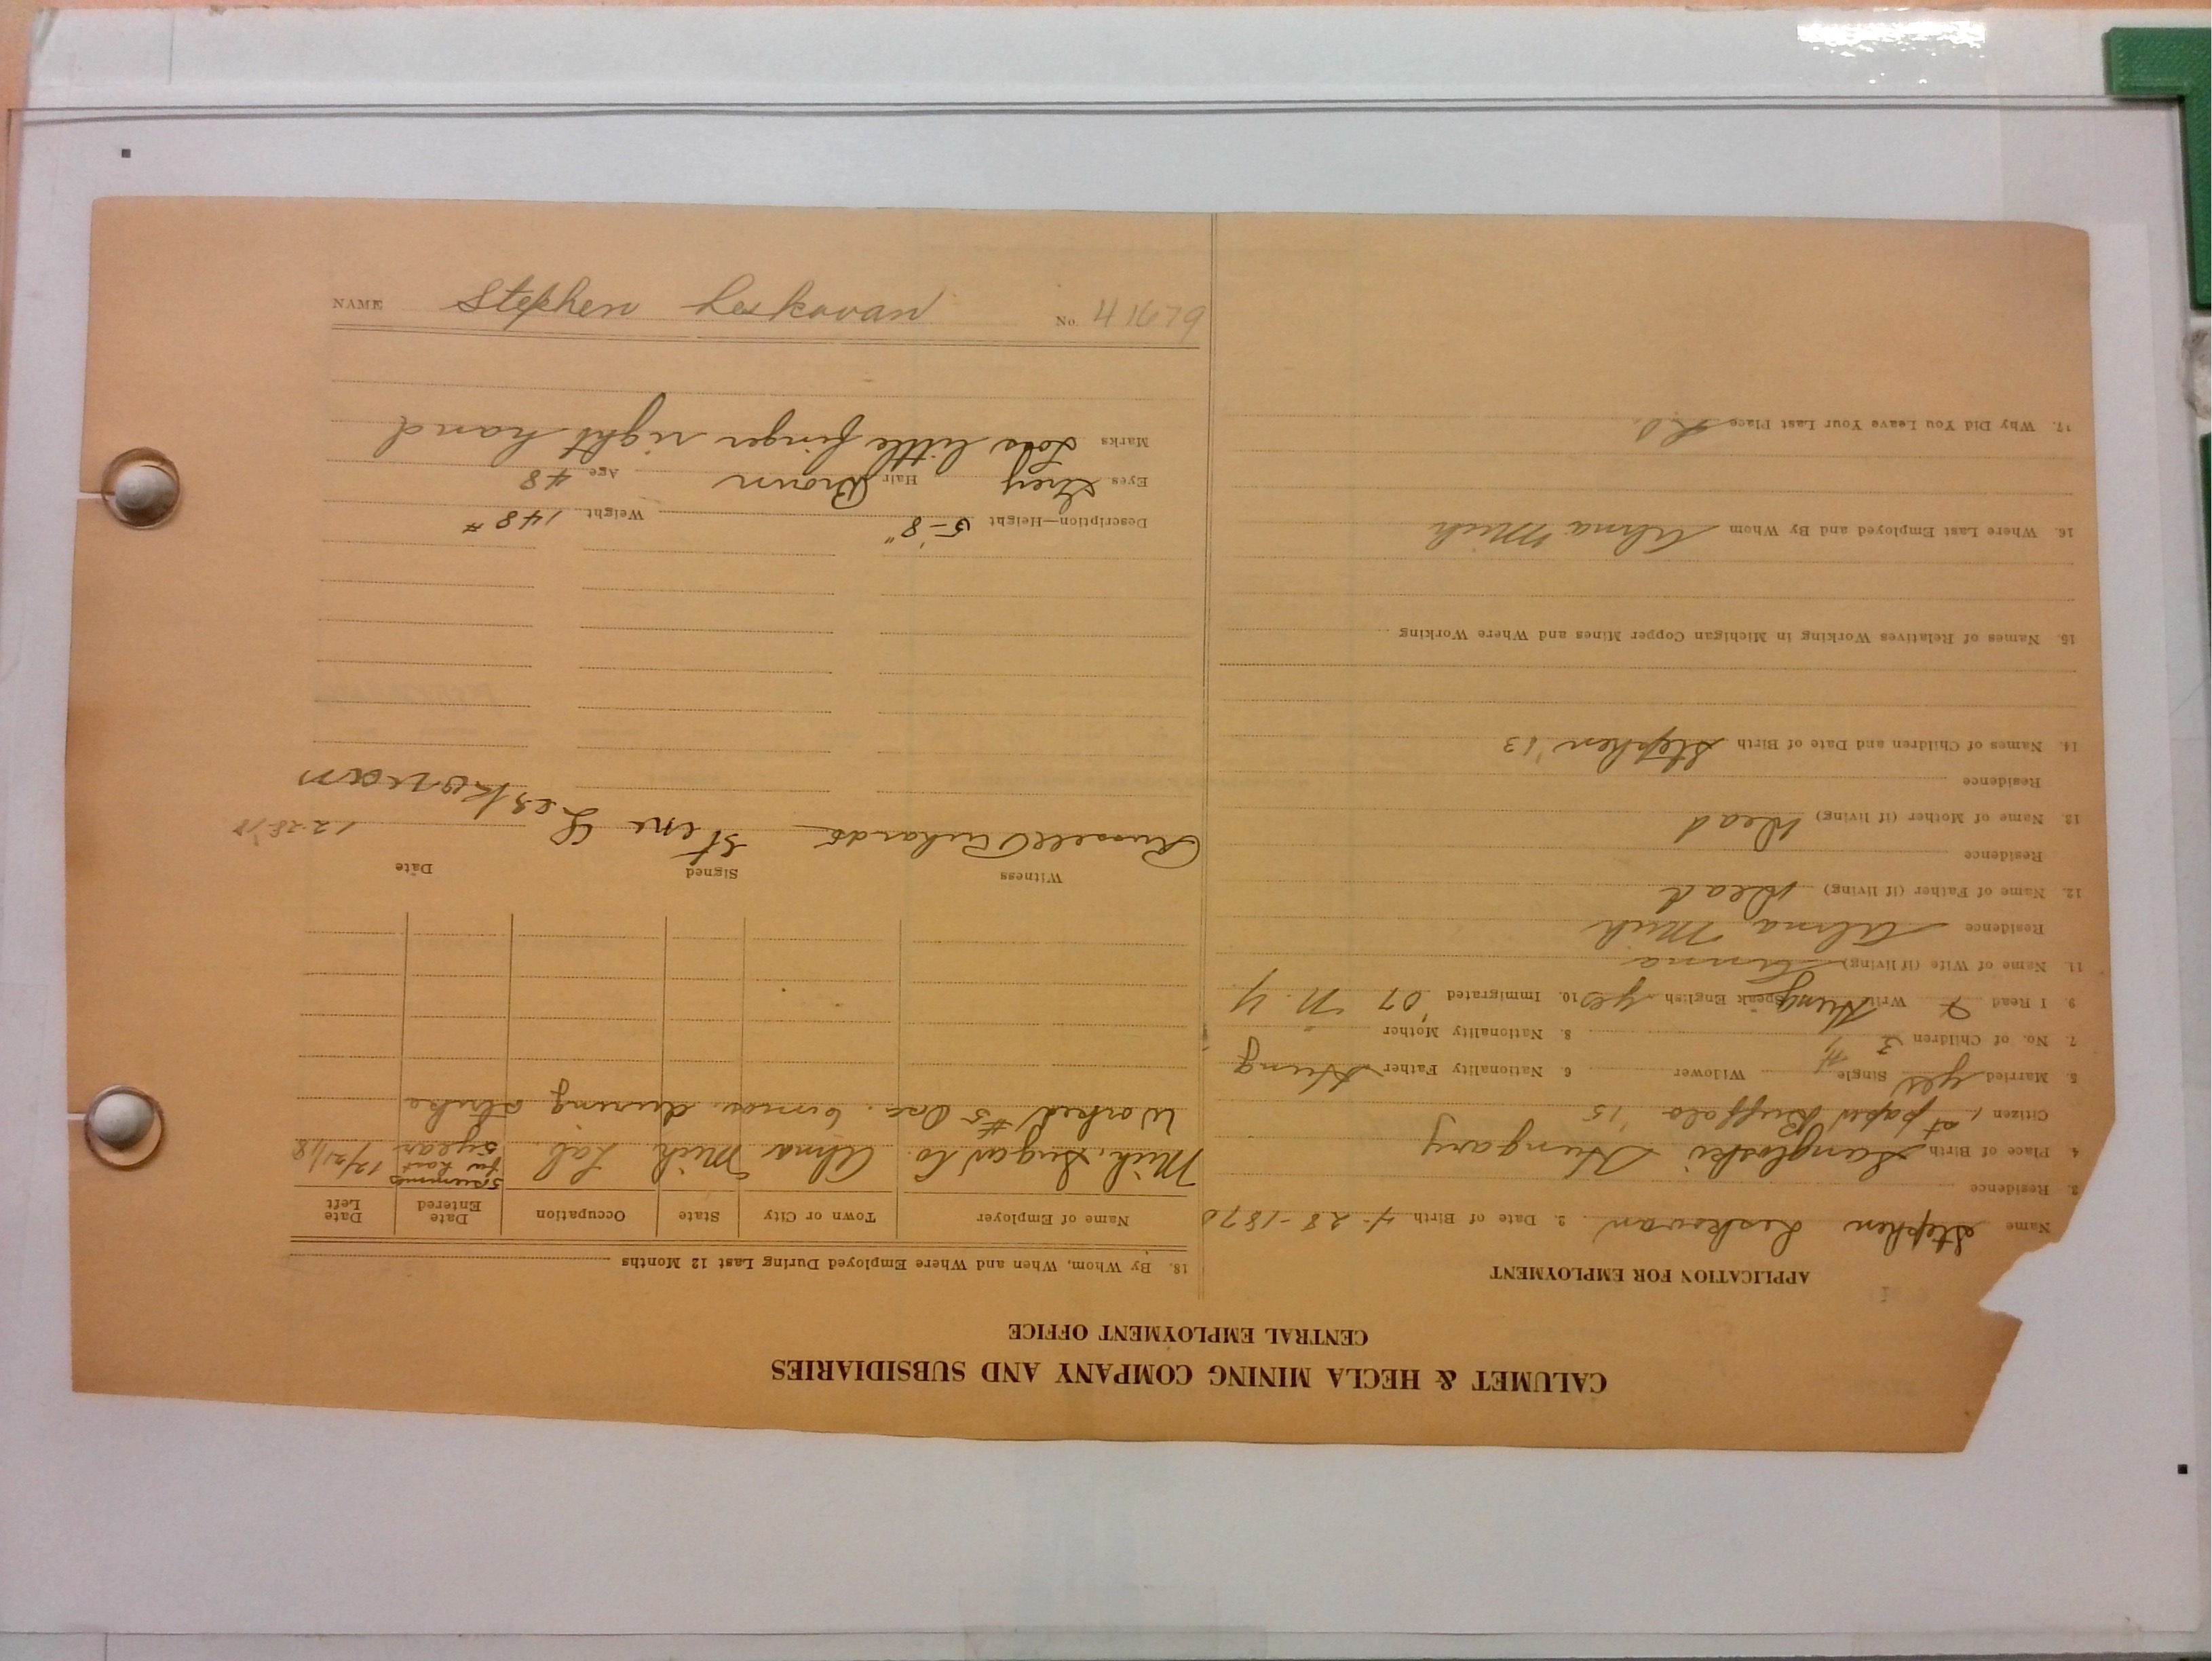 CALUMET & HECLA MINING COMPANY AND SUBSIDIARIES
CENTRAL EMPLOYMENT OFFICE
APPLICATION FOR EMPLOYMENT
Name Stephen Leskovan 2. Date of Birth 4-28-1870
3. Residence
4. Place of Birth Hungary
Citizen 1st paper Buffalo '15
5. Married yes Single Widower 6. Nationality Father Hung
7. No. of Children 8. Nationality Mother "
9. I Read Write Hung Speak English yes 10. Immigrated '07 N.Y
11. Name of Wife (if living) Anna
Residence Alma Mich
12. Name of Father (if living) Dead
Residence
13. Name of Mother (if living) Dead
Residence
14. Names of Children and Date of Birth Stephen '13
15. Names of Relatives Working in Michigan Copper Mines and Where Working
16. Where Last Employed and By Whom Alma Mich
17. Why Did You Leave Your Last Place
18. By Whom, When and Where Employed During Last 12 Months
Name of Employer Town or City State Occupation Date Entered Date Left
Mich. Sugar Co. Alma Mich Lab. 5 summers for last 5 years 12/21/18
Worked #5 Tam. 6 mos. during strike
Witness Signed Date
Russell Richards Steve Leskovan 12-28-18
Description—Height 5'-8" Weight 148 #
Eyes Grey Hair Brown Age 48
Marks Lobs little finger right hand
NAME Stephen Leskovan No. 41679